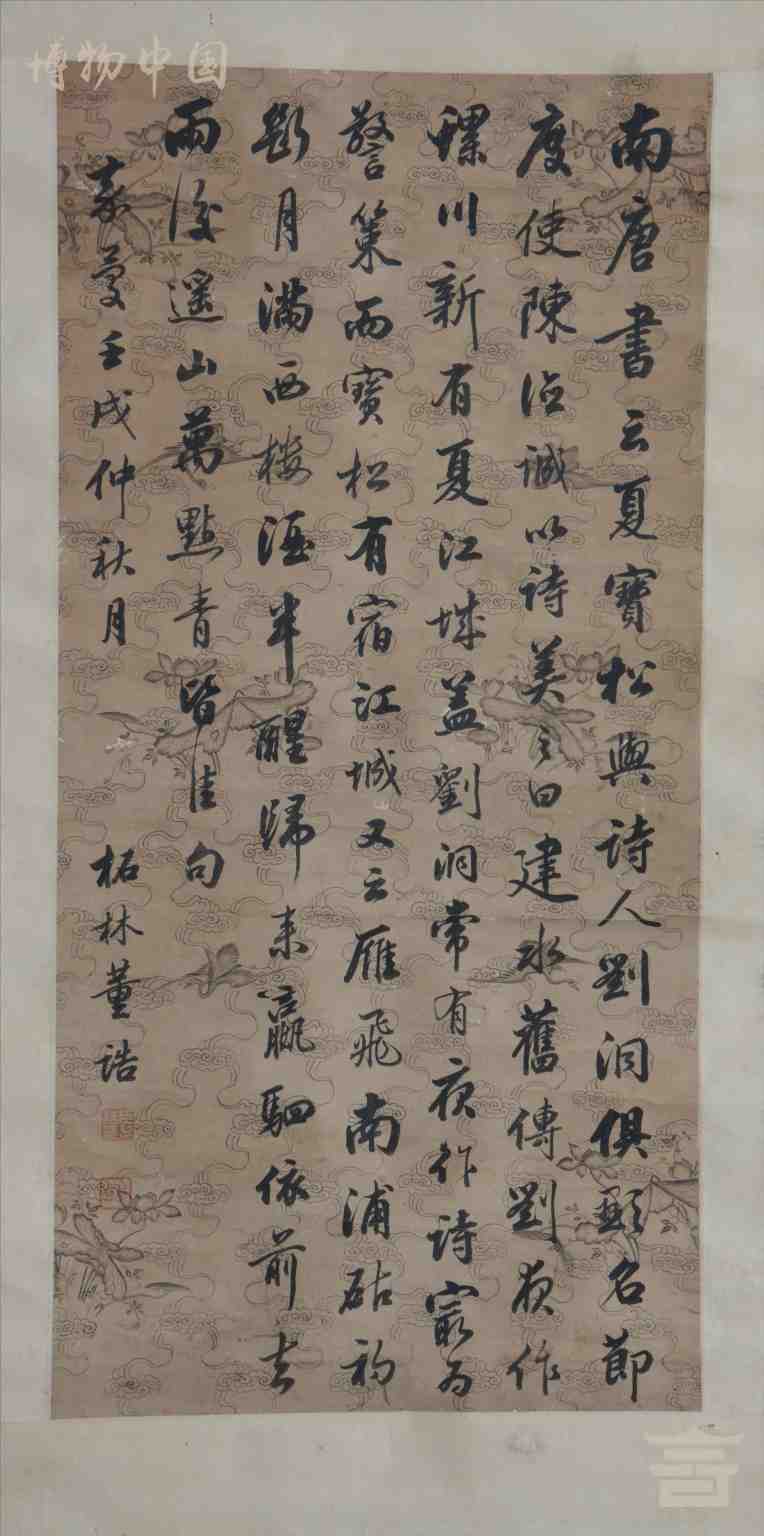 博物中国
南唐書云夏寶松與詩人劉洞俱顯名節
度使陳德誠以詩美之曰建水舊傳劉夜作
螺川新有夏江城蓋劉洞常有夜作詩最为
警策而寶松有宿江城又云雁飛南浦砧初
斷月滿西樓酒半醒歸来羸駟依前去
雨後遥山萬點青皆佳句
嘉慶壬戌仲秋月 柘林董誥